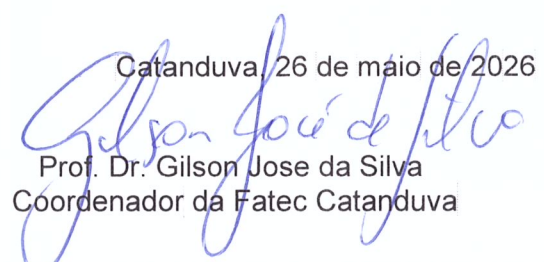 Catanduva, 26 de maio de 2026
Gilson José da Silva
Prof. Dr. Gilson Jose da Silva
Coordenador da Fatec Catanduva